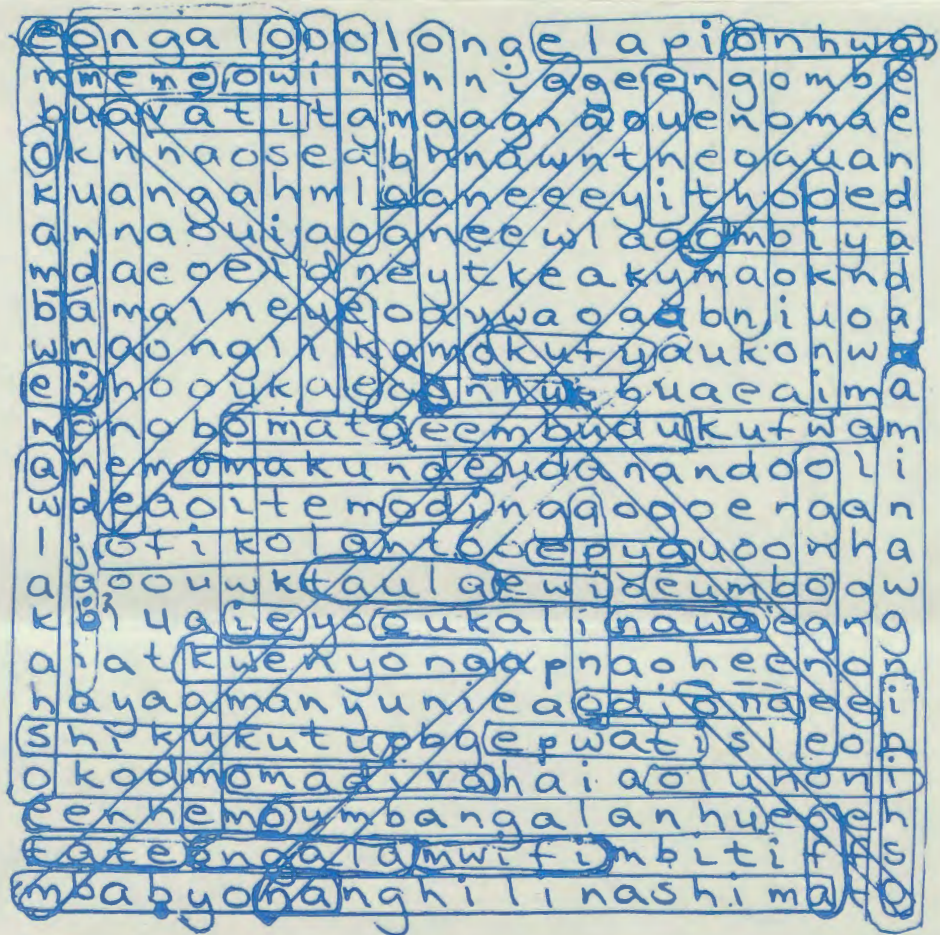 eongaloooolongelapionhwa
mmemeowinonniageengombe
buavatitgmgagnaouenomae
oknnaoseabhnawntneoauan
kuangahmlaaneeeyithooed
annaouiaoaneewlaaombiya
mdaeoeidneytkeakymaoknd
bamalneueodywaoaabniuoa
hooykaeoonhu buaeaima
nenobomatoeembudukufwam
anemomakundeudanandooli
wdeaoitemodinggogoengan
ofikolantooepyauoonha
aooouwktaulaewideumboaw
huaieyooukalinawaiegng
aiatkwenyongapnaoheenon
nayaamanyunieaodjonaeei
shikukutuobgepwatisleon
okodmomadivahaiaoluhoni
eenhemoumbangalanhueoeh
tateongalamwifimbitiffs
mbabyonanghilinashimato